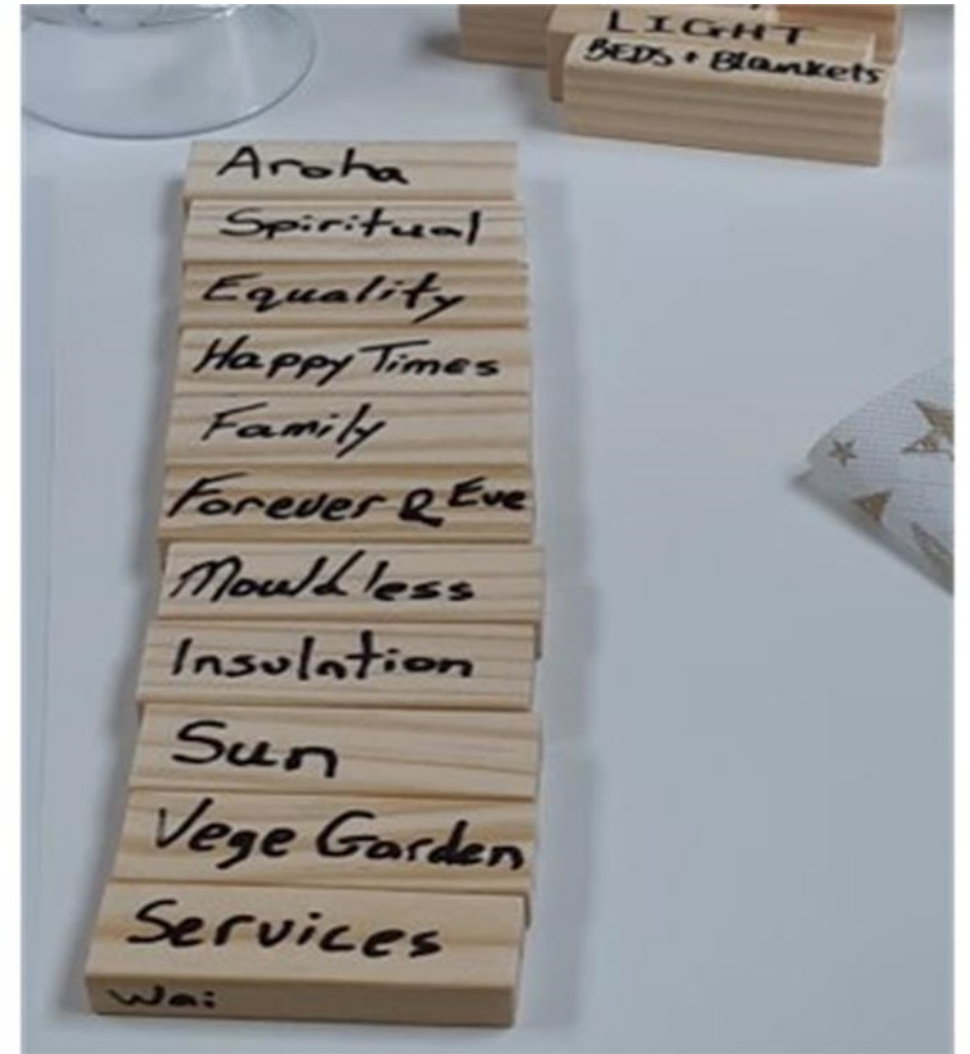 LIGHT
BEDS + Blankets
Aroha
Spiritual
Equality
Happy Times
Family
Forever & Eve
Mouldless
Insulation
Sun
Vege Garden
Services
Wai